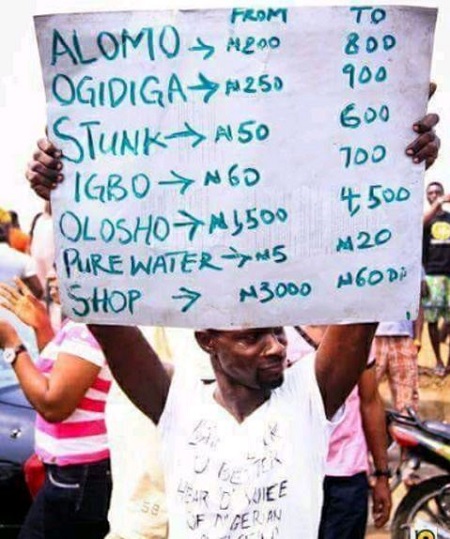 FROM TO
ALOMO → ₦200 800
OGIDIGA → ₦250 900
STUNK → ₦50 600
IGBO → ₦60 700
OLOSHO → ₦1,500 4,500
PURE WATER → ₦5 ₦20
SHOP → ₦3000
U BETTER
HEAR D' VOICE
OF N*GERIAN
58